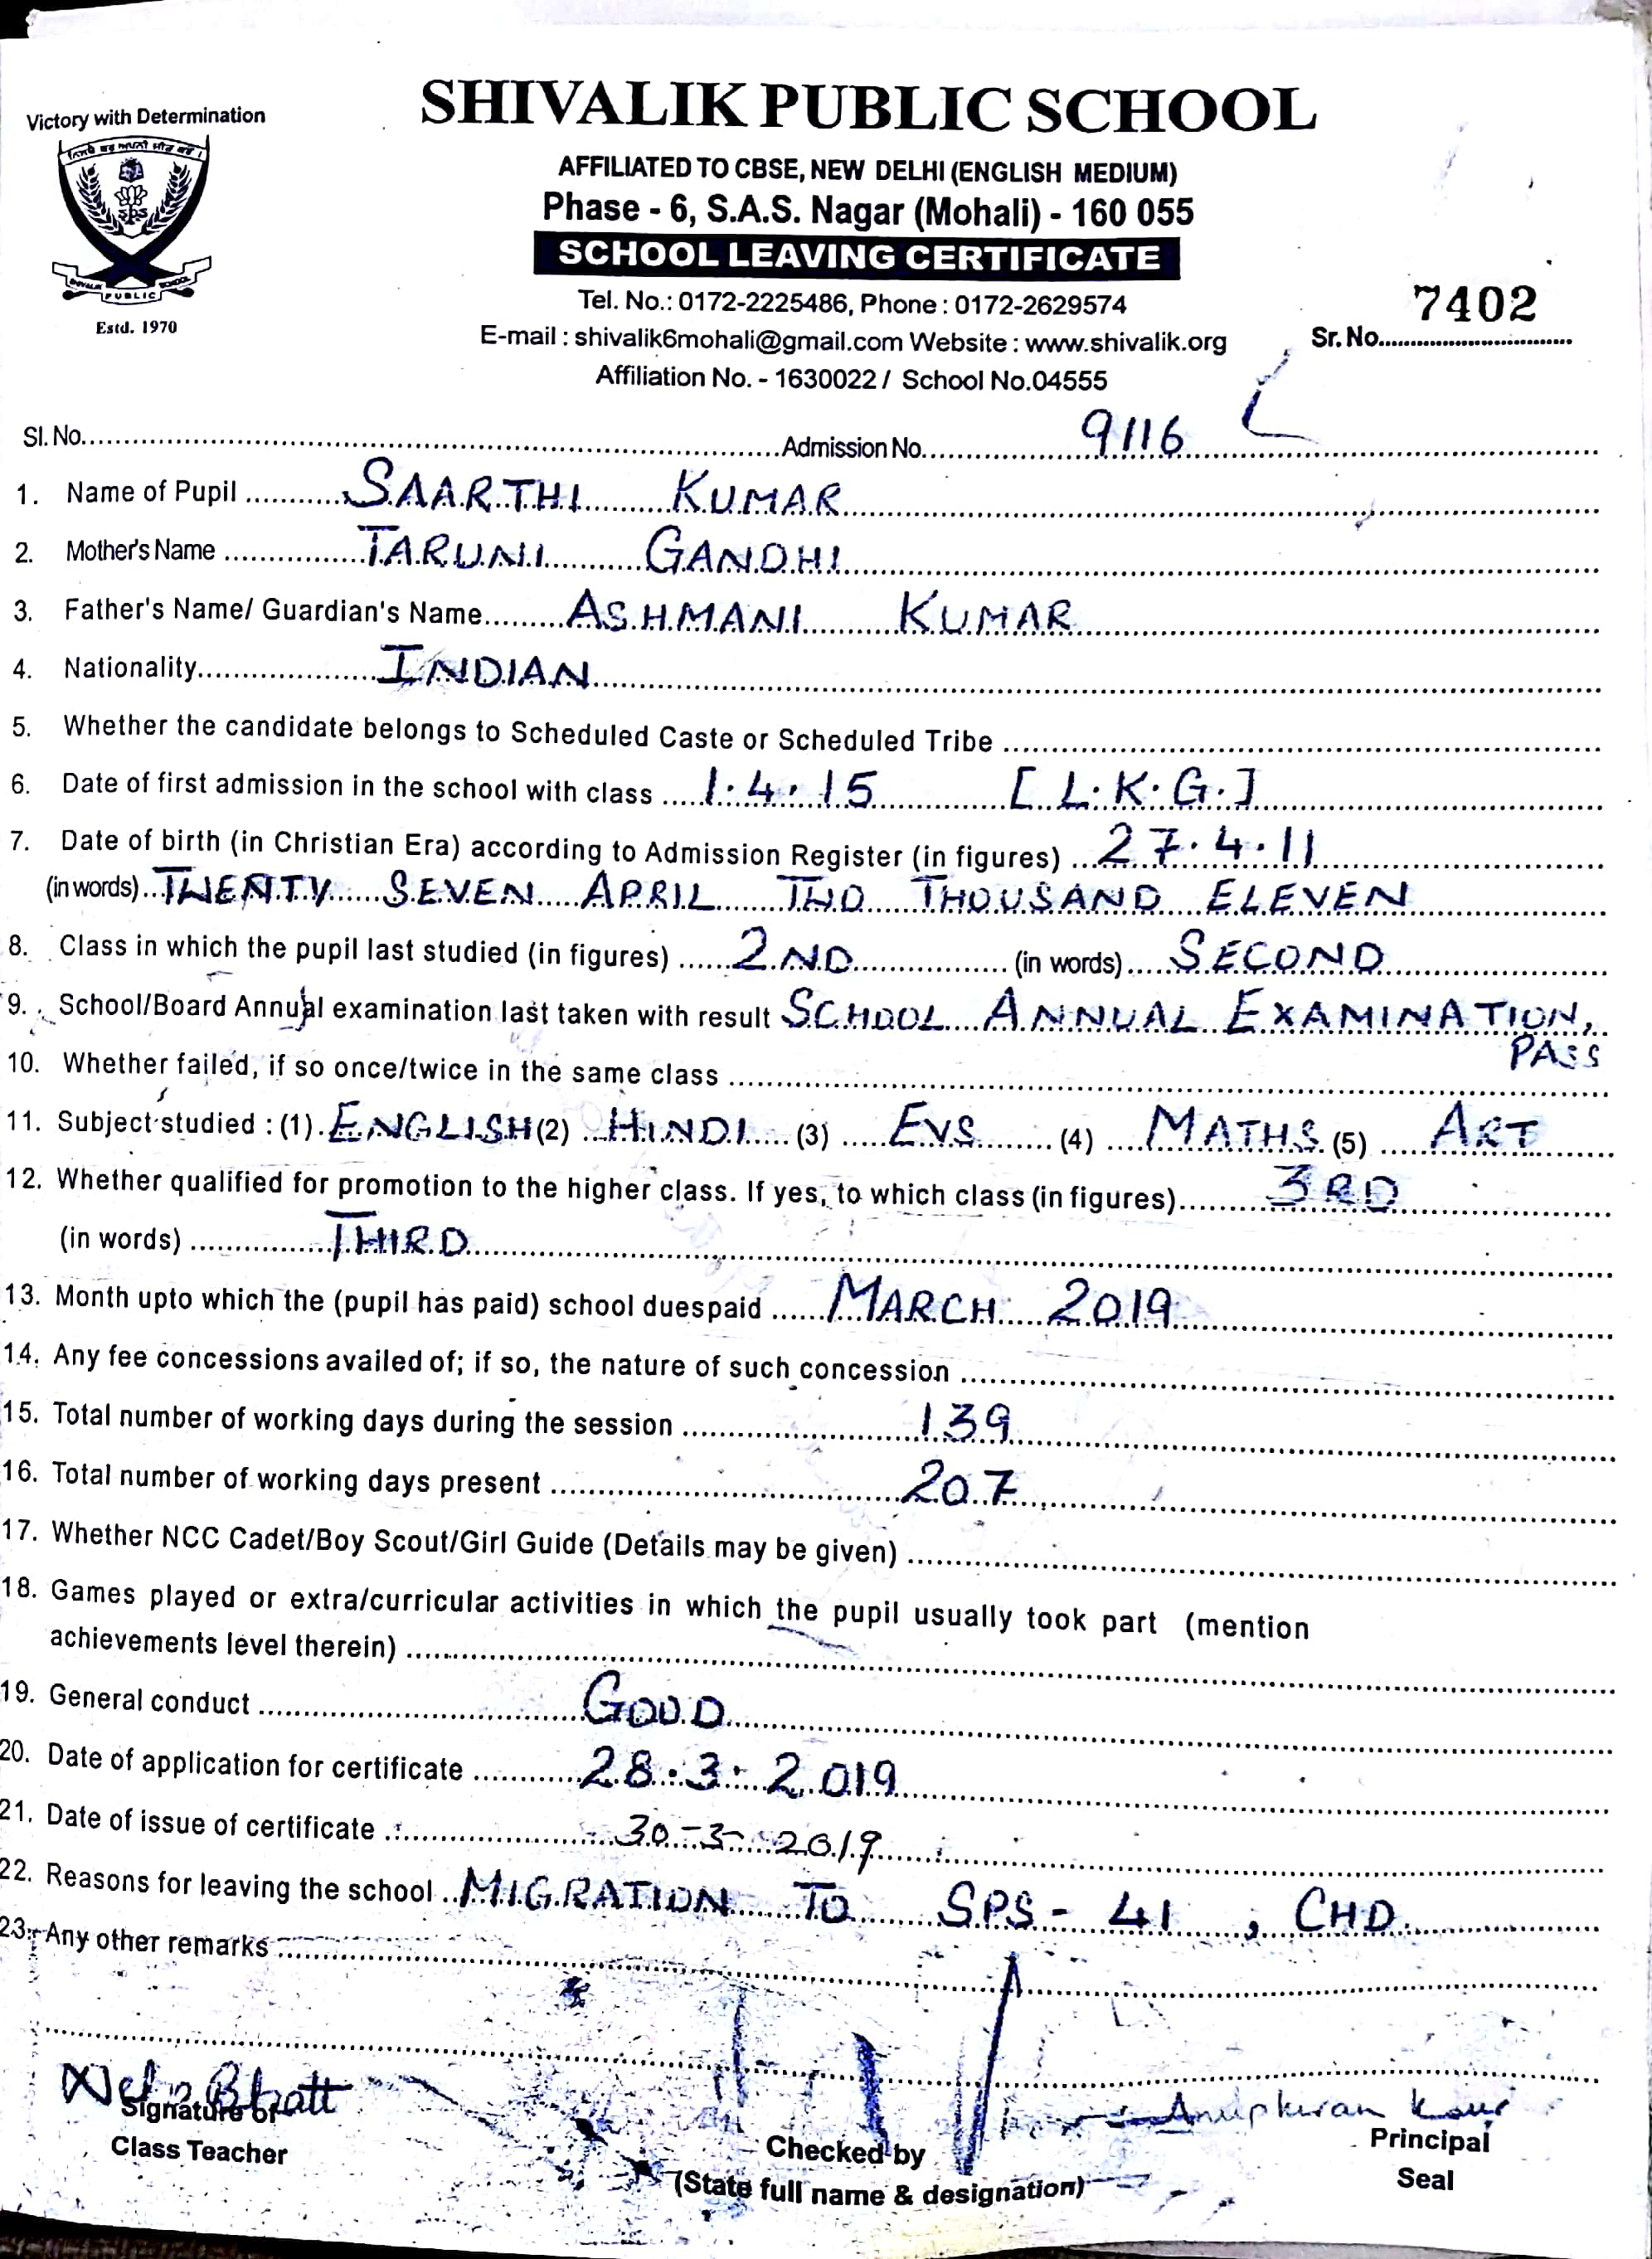 Victory with Determination
SHIVALIK PUBLIC SCHOOL
AFFILIATED TO CBSE, NEW DELHI (ENGLISH MEDIUM)
Phase - 6, S.A.S. Nagar (Mohali) - 160 055
SCHOOL LEAVING CERTIFICATE
SPS
SHIVALIK PUBLIC SCHOOL
Estd. 1970
Tel. No.: 0172-2225486, Phone : 0172-2629574
E-mail : shivalik6mohali@gmail.com Website : www.shivalik.org
Affiliation No. - 1630022 / School No.04555
Sr. No. 7402
Sl. No. Admission No. 9116
1. Name of Pupil SAARTHI KUMAR
2. Mother's Name TARUNI GANDHI
3. Father's Name/ Guardian's Name ASHMANI KUMAR
4. Nationality INDIAN
5. Whether the candidate belongs to Scheduled Caste or Scheduled Tribe
6. Date of first admission in the school with class 1.4.15 [L.K.G.]
7. Date of birth (in Christian Era) according to Admission Register (in figures) 27.4.11
(in words) TWENTY SEVEN APRIL TWO THOUSAND ELEVEN
8. Class in which the pupil last studied (in figures) 2ND (in words) SECOND
9. School/Board Annual examination last taken with result SCHOOL ANNUAL EXAMINATION,
PASS
10. Whether failed, if so once/twice in the same class
11. Subject studied : (1) ENGLISH (2) HINDI (3) EVS (4) MATHS (5) ART
12. Whether qualified for promotion to the higher class. If yes, to which class (in figures) 3RD
(in words) THIRD
13. Month upto which the (pupil has paid) school duespaid MARCH 2019
14. Any fee concessions availed of; if so, the nature of such concession
15. Total number of working days during the session 139
16. Total number of working days present 207
17. Whether NCC Cadet/Boy Scout/Girl Guide (Details may be given)
18. Games played or extra/curricular activities in which the pupil usually took part (mention
achievements level therein)
19. General conduct GOOD
20. Date of application for certificate 28.3.2019
21. Date of issue of certificate 30-3-2019
22. Reasons for leaving the school MIGRATION TO SPS - 41, CHD.
23. Any other remarks
Neha Bhatt
Anupkiran Kaur
Signature of
Class Teacher
Checked by
(State full name & designation)
Principal
Seal